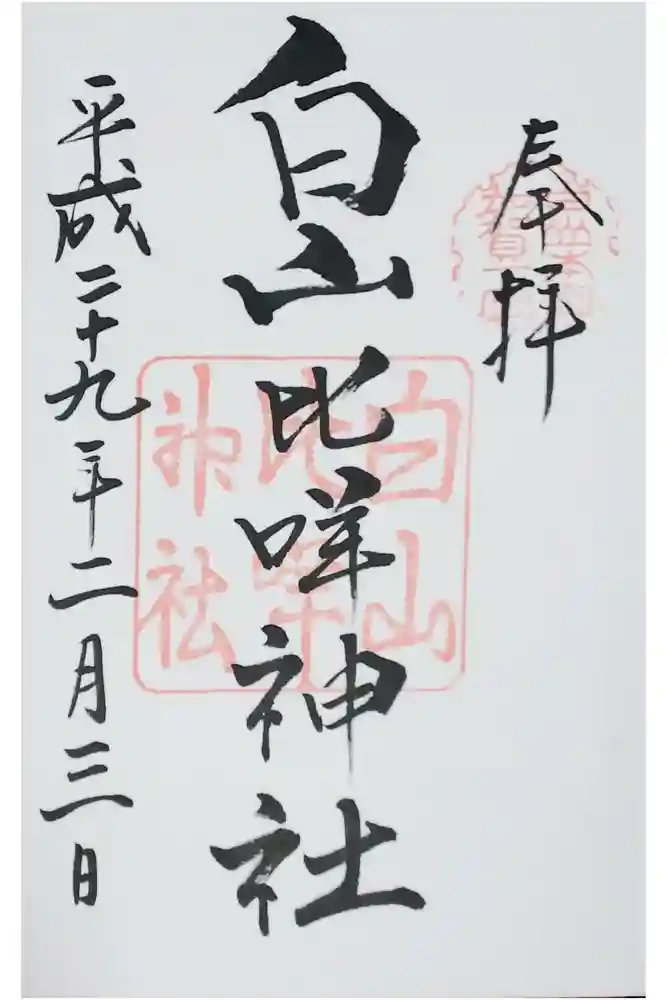 奉拝
白山比咩神社
平成二十九年二月三日
白山
比咩
神社